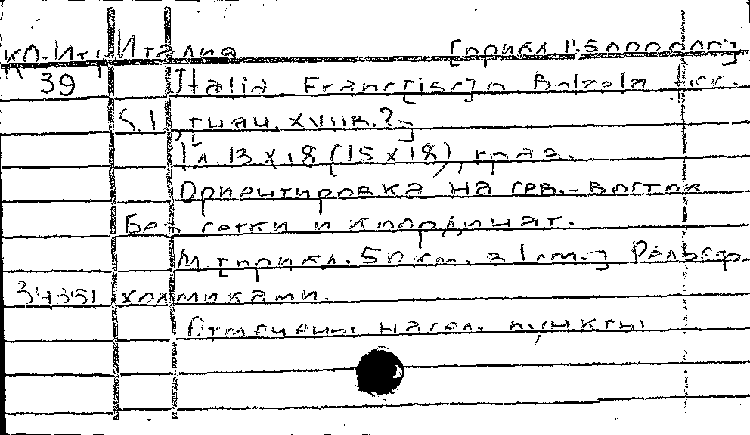 КП.Ит. Италия [прибл. 1:5000000]
39 Italia. Franc[isc]o
S.l., [нач. XVIII в.?]
1 л. 13 x 18 (15 x 18), грав.
Ориентировка на сев.-восток
Без сетки и координат.
М. [прибл. 50 км. в 1 см.] Рельеф
34351 холмиками.
Отмечены насел. пункты